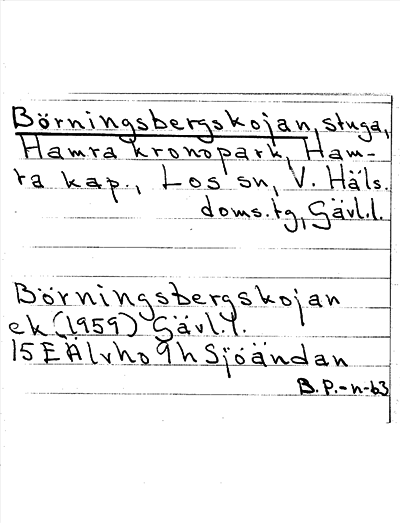 Börningsbergskojan, stuga,
Hamra kronopark, Ham-
ra kap., Los sn, V. Häls.
doms.tg, Gävl.l.
Börningsbergskojan
ek (1959) Gävl.l.
15E Älvho 9h Sjöändan
B.P.-n-63